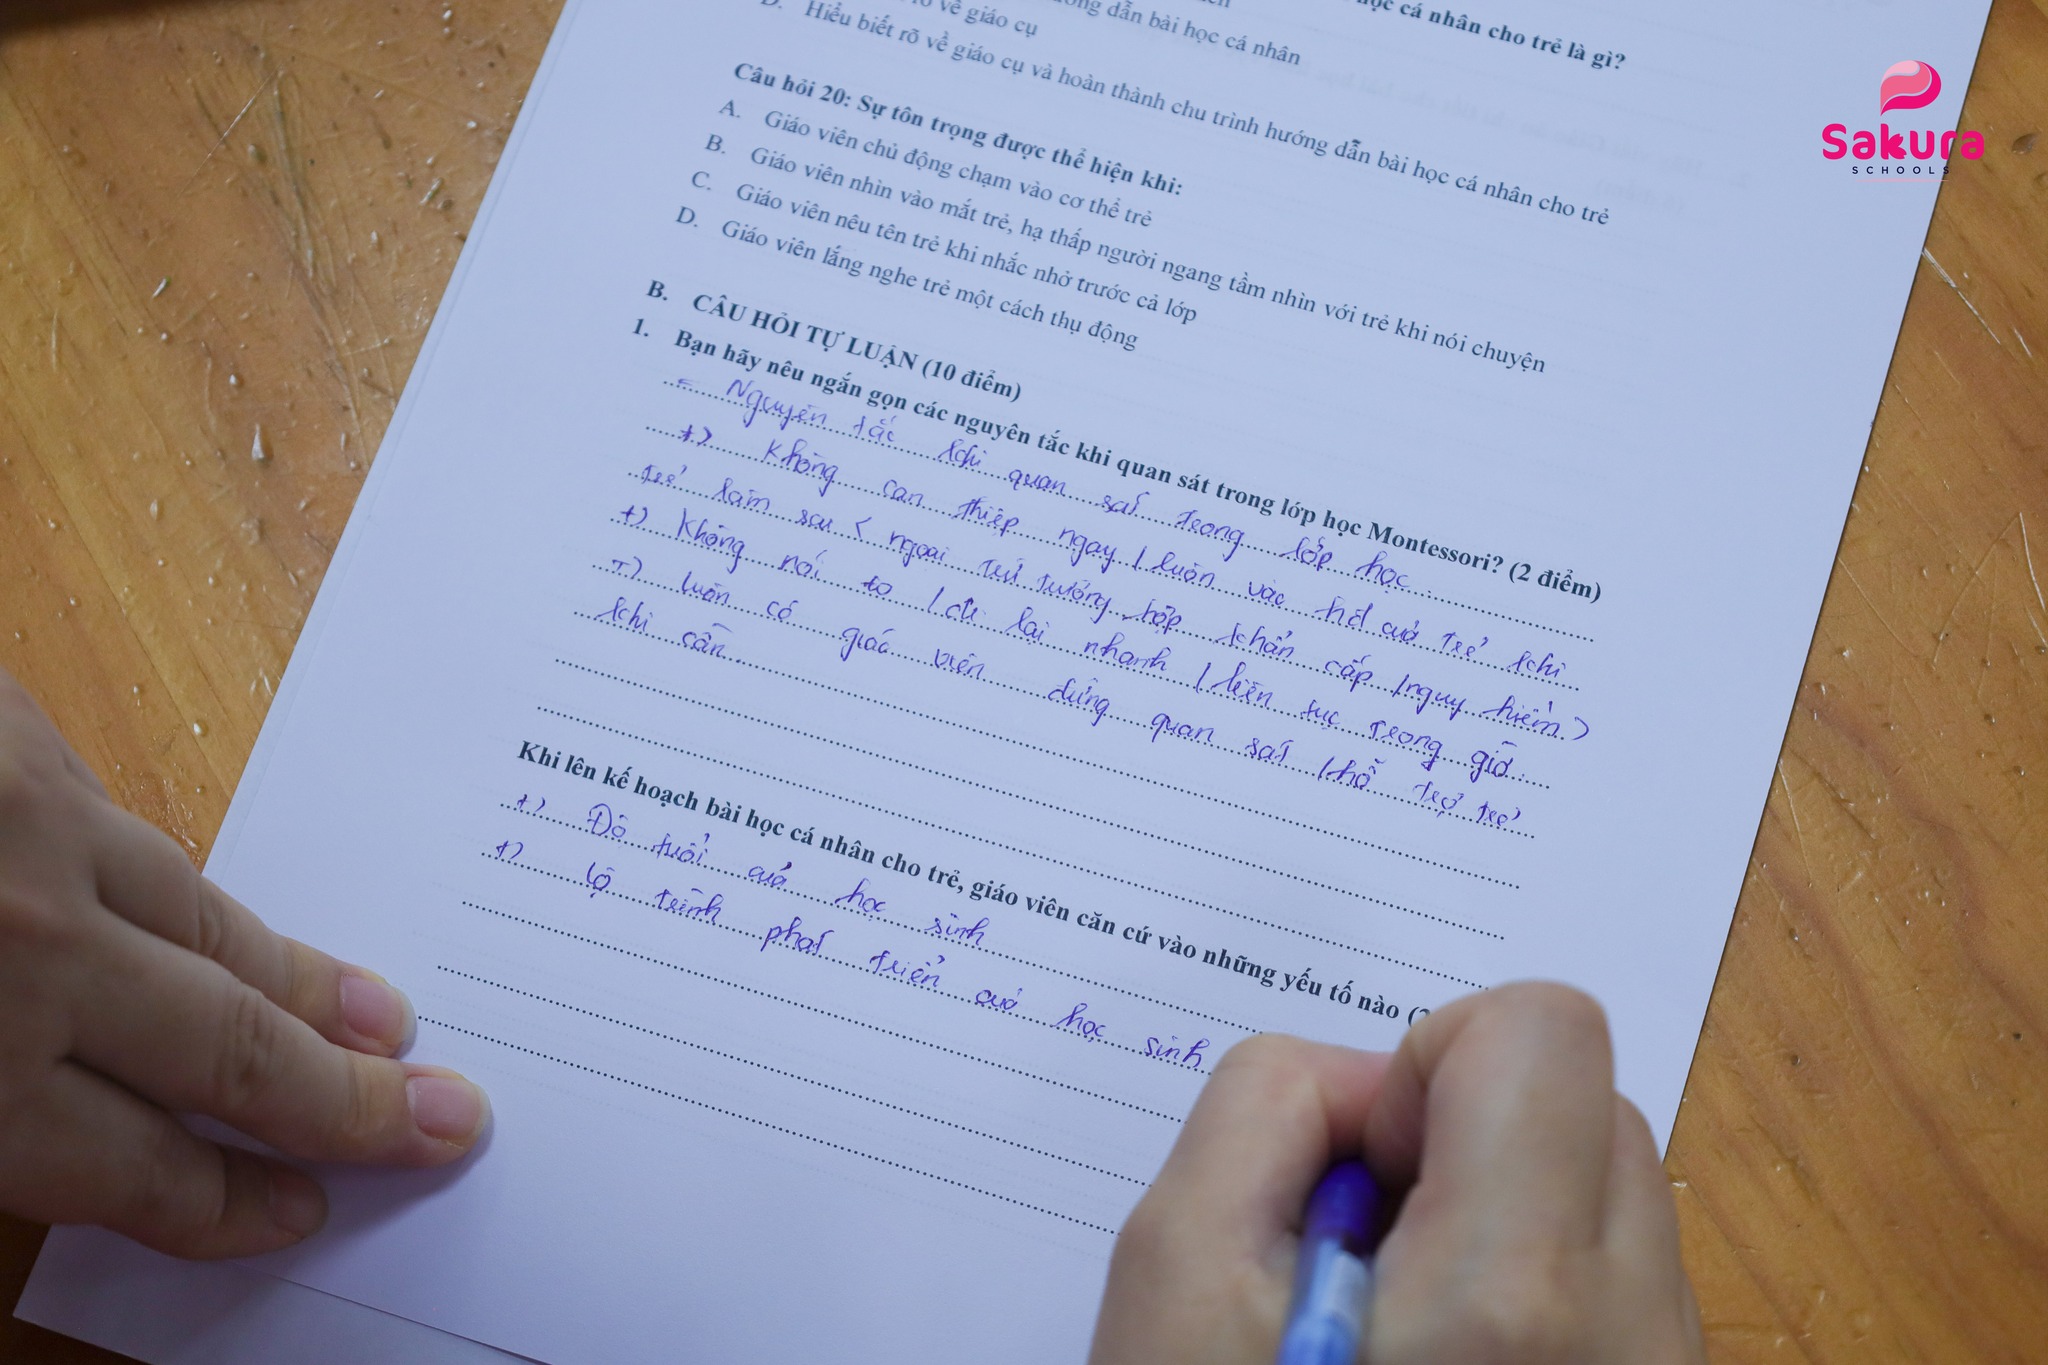 học cá nhân cho trẻ là gì?
rõ về giáo cụ
dẫn bài học cá nhân
D. Hiểu biết rõ về giáo cụ và hoàn thành chu trình hướng dẫn bài học cá nhân cho trẻ
Câu hỏi 20: Sự tôn trọng được thể hiện khi:
A. Giáo viên chủ động chạm vào cơ thể trẻ
B. Giáo viên nhìn vào mắt trẻ, hạ thấp người ngang tầm nhìn với trẻ khi nói chuyện
C. Giáo viên nêu tên trẻ khi nhắc nhở trước cả lớp
D. Giáo viên lắng nghe trẻ một cách thụ động
B. CÂU HỎI TỰ LUẬN (10 điểm)
1. Bạn hãy nêu ngắn gọn các nguyên tắc khi quan sát trong lớp học Montessori? (2 điểm)
- Nguyên tắc khi quan sát trong lớp học
+) Không can thiệp ngay / luôn vào hđ của trẻ khi
trẻ làm sai < ngoại trừ trường hợp khẩn cấp / nguy hiểm >
+) Không nói to / đi lại nhanh / liên tục trong giờ.
+) Luôn có giáo viên đứng quan sát / hỗ trợ trẻ
khi cần.
Khi lên kế hoạch bài học cá nhân cho trẻ, giáo viên căn cứ vào những yếu tố nào (2
+) Độ tuổi của học sinh
+) Lộ trình phát triển của học sinh
Sakura
SCHOOLS